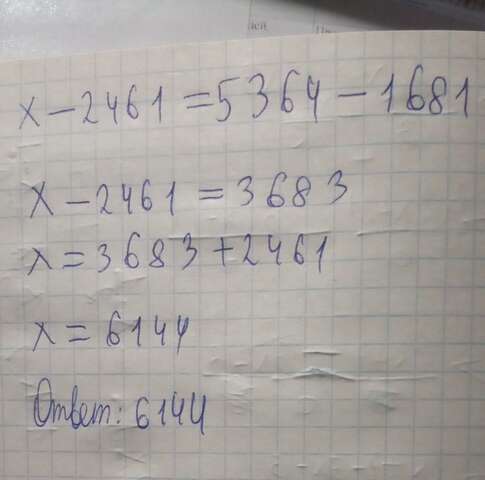 x - 2461 = 5364 - 1681
x - 2461 = 3683
x = 3683 + 2461
x = 6144
Ответ: 6144